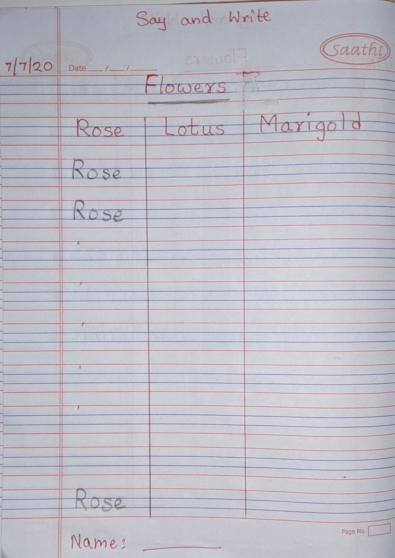 Say and Write
Saathi
7/7/20 Date __/__/__
Flowers
Rose Lotus Marigold
Rose
Rose
Rose
Page No.
Name: ______